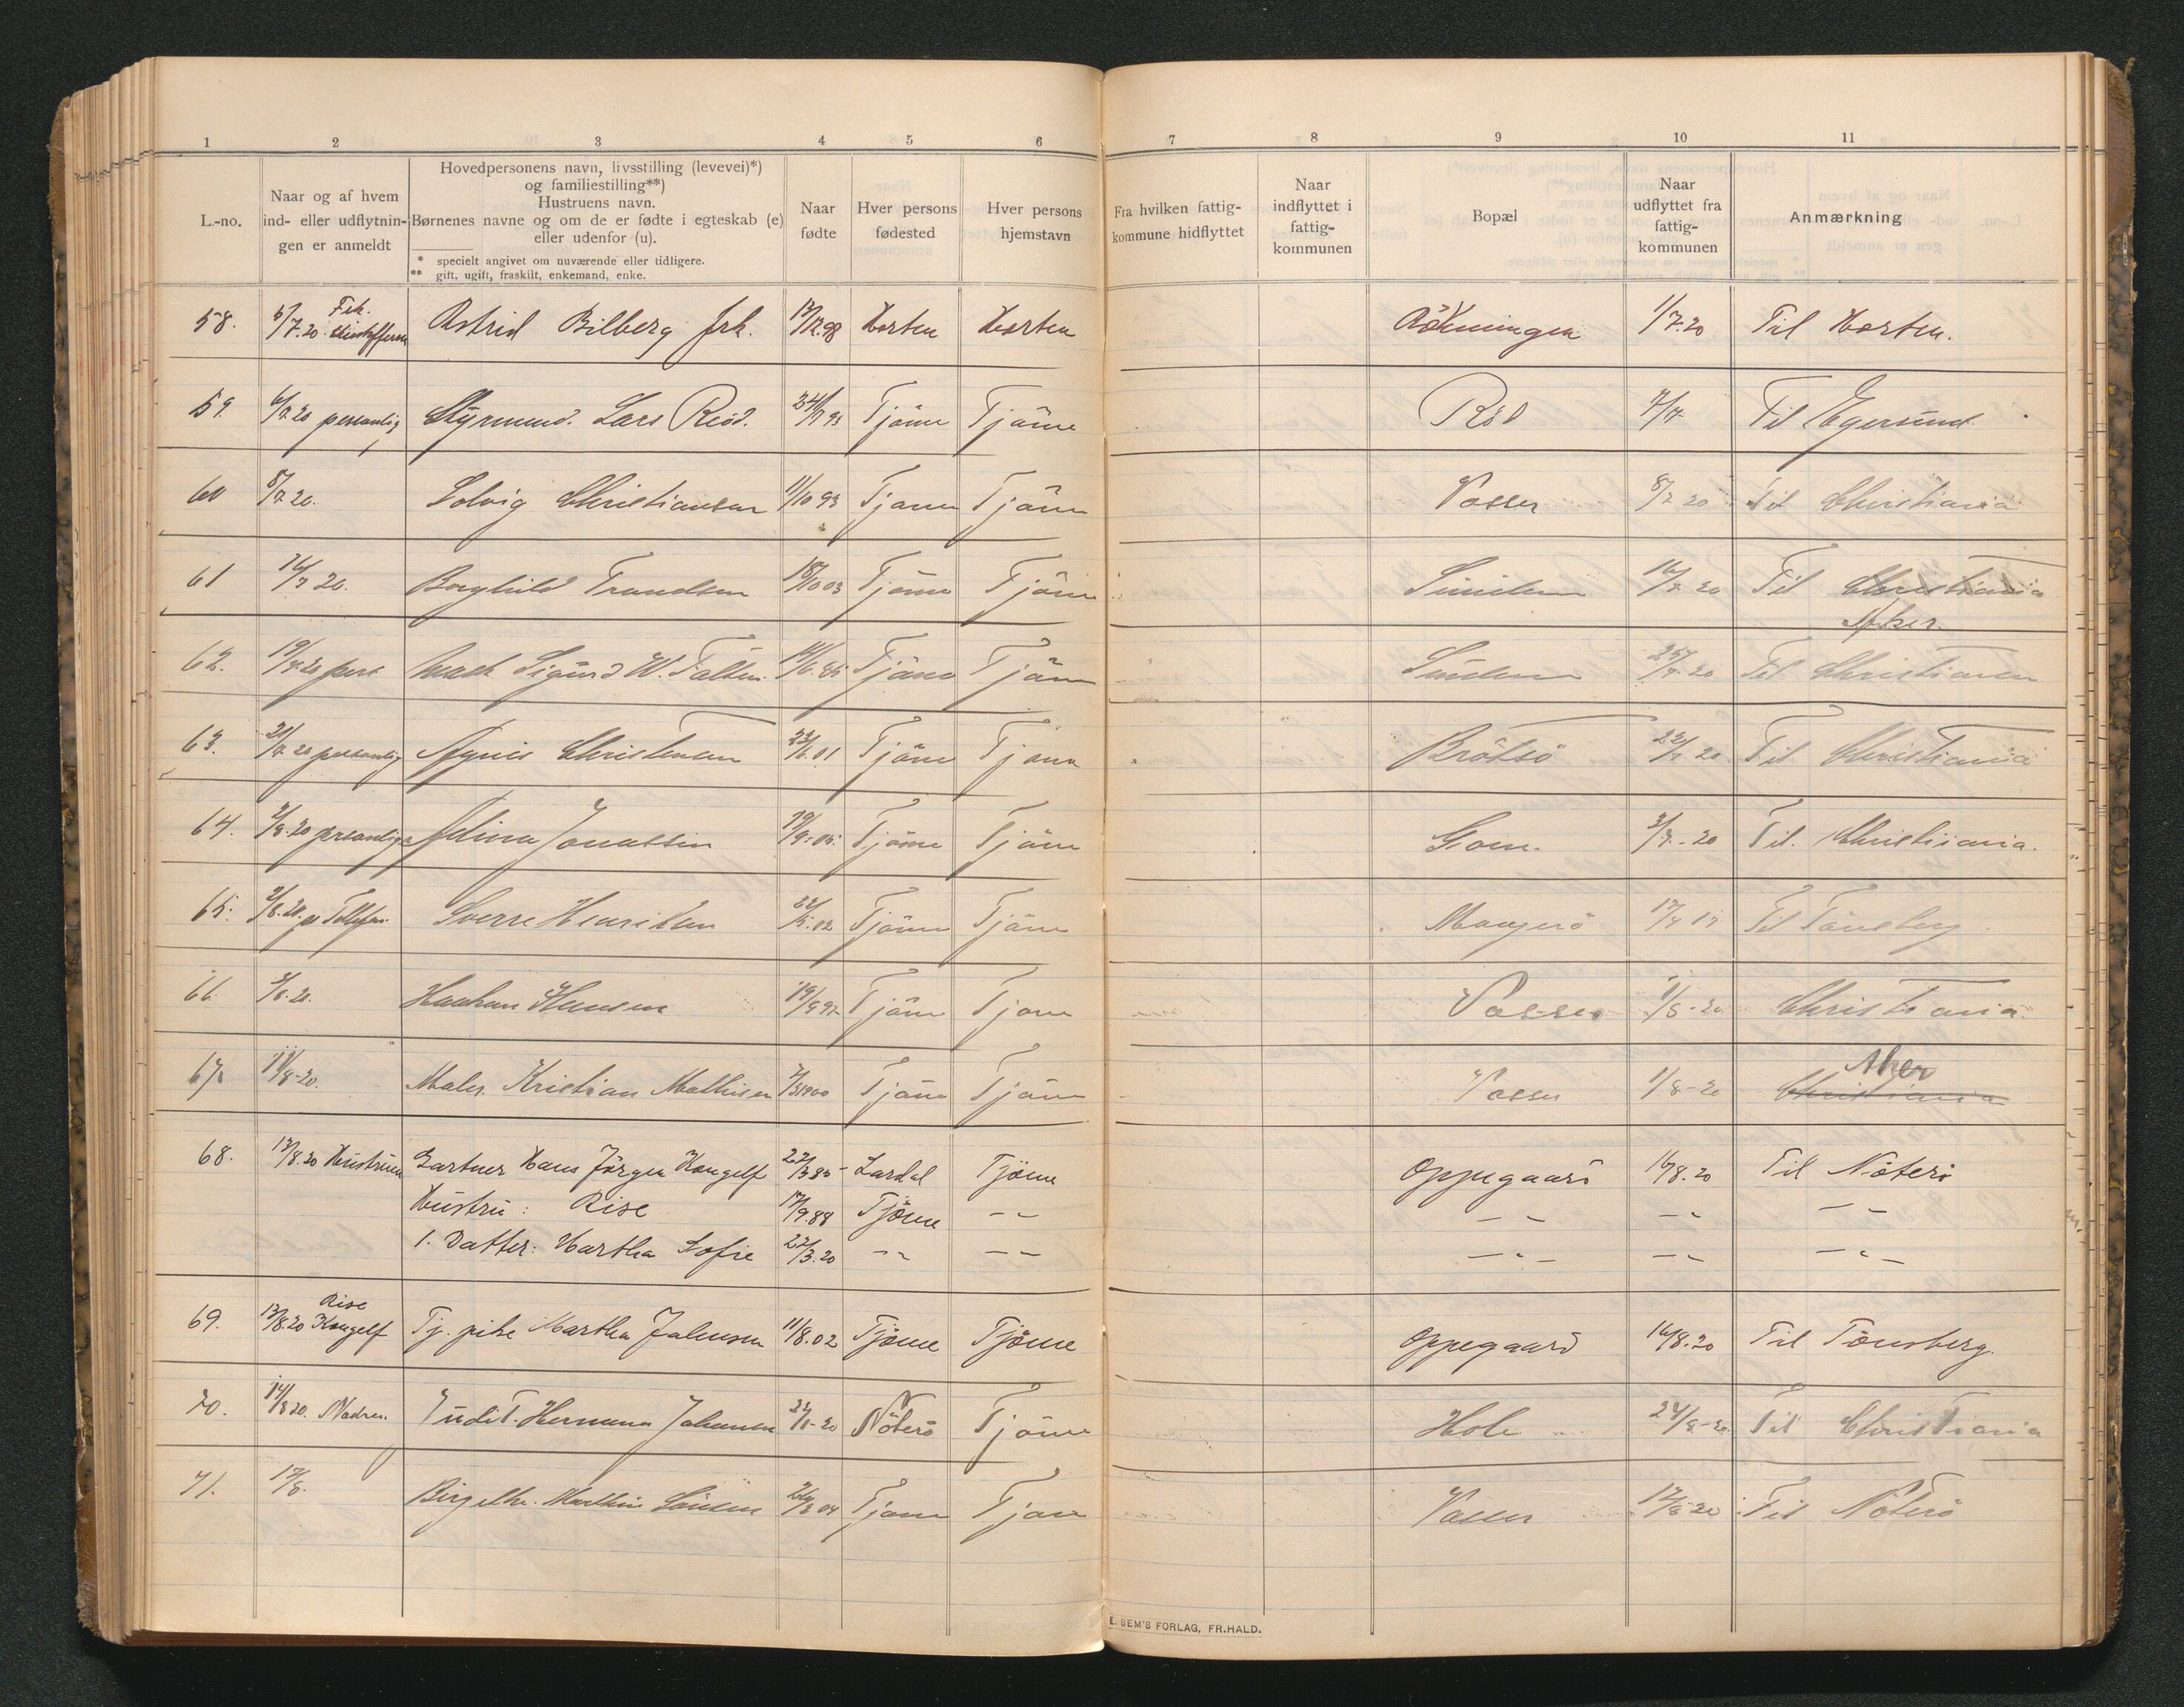 1 2 3 4 5 6 7 8 9 10 11
L.-no.
Naar og af hvem
ind- eller udflytnin-
gen er anmeldt
Hovedpersonens navn, livsstilling (levevei)*)
og familiestilling**)
Hustruens navn.
Børnenes navne og om de er fødte i egteskab (e)
eller udenfor (u).
* specielt angivet om nuværende eller tidligere.
** gift, ugift, fraskilt, enkemand, enke.
Naar
fødte
Hver persons
fødested
Hver persons
hjemstavn
Fra hvilken fattig-
kommune hidflyttet
Naar
indflyttet i
fattig-
kommunen
Bopæl
Naar
udflyttet fra
fattig-
kommunen
Anmærkning
58. 5/7.20. Frk. Astrid Bilberg frk. Horten Horten 1/7.20 Til Horten.
59. 6/7.20 personlig Styrmand. Lars Röd. 24/7 93 Tjöme Tjöme Röd 7/7 Til Egersund.
60 8/7 20. Solvig Christiansen 11/10 93 Tjöme Tjöme Vasser 8/7 20 Til Christiania
61 16/7 20. Borghild Trondsen 18/10 03 Tjöme Tjöme Sunden 16/7 20 Til Christiania
Aker.
62. 19/7.20 pers Sigurd W. Tjöme Tjöme Sunden 25/7.20 Til Christiania
63. 21/7 20 personlig Agnes Christensen Tjöme Tjöme Brötsö 22/7 20 Til Christiania
64. 2/8.20 personlig Alma Jonassen Tjöme Tjöme 3/8-20 Til Christiania.
65. 2/8.20. Sverre Henriksen Tjöme Tjöme Til Tönsberg
66. 3/8.20. Haakon Hansen Tjöme Tjöme Vasser 1/8-20 Christiania
67. 11/8-20. Maler. Kristian Mathisen 2/3 1900 Tjöme Tjöme Vasser 1/8-20 Christiania
Aker
68. 13/8.20 Hustruen Gartner Hans Jörgen Kongelf 22/3 85 Lardal Tjöme Oppegaard 16/8.20 Til Nöterö
Hustru: Rise 17/9.88 Tjöme -"- -"- -"- -"-
1. Datter: Martha Sofie 22/3.20 -"- -"- -"- -"- -"-
69. 13/8.20 Rise Kongelf Tj. pike Martha Johnsen 11/8.02 Tjöme Tjöme Oppegaard 16/8.20 Til Tönsberg.
70. 14/8 20. Modren. Judit. Hermana Johansen Nöterö Tjöme Hole 24/8-20 Til Christiania
71. 17/8. Tjöme Tjöme Vasser 17/8 20 Til Nöterö
E. SEM'S FORLAG, FR.HALD.